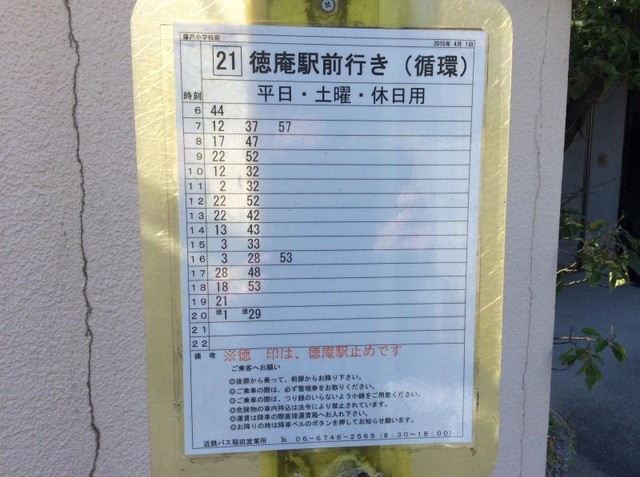 藤戸小学校前
2015年 4月 1日
21 徳庵駅前行き（循環）
時刻 平日・土曜・休日用
6 44
7 12 37 57
8 17 47
9 22 52
10 12 32
11 2 32
12 22 52
13 22 42
14 13 43
15 3 33
16 3 28 53
17 28 48
18 18 53
19 21
20 徳1 徳29
21
22
備考 ※徳 印は、徳庵駅止めです
ご乗客へお願い
◎後扉から乗って、前扉からお降り下さい。
◎ご乗車の際は、必ず整理券をお取りください。
◎ご乗車の際は、つり銭のいらないよう小銭をご用意ください。
◎危険物の車内持込は法令により禁止されています。
◎運賃は降車の際直接運賃箱へお入れ下さい。
◎お降りの時は降車ベルのボタンを押してお知らせ願います。
近鉄バス稲田営業所 ℡ 06-6746-2565 (8:30~18:00)